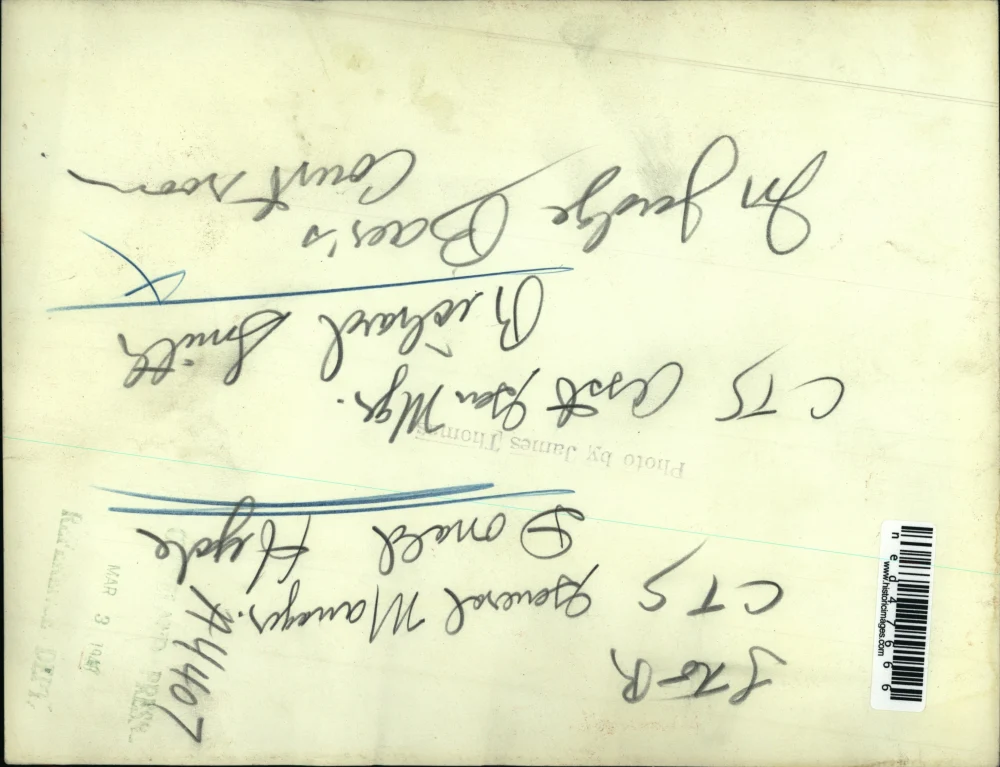 L to R
CTS General Manager.
Donald Hyde
A4407
Photo by James Thomas
CTS Asst Gen Mgr.
Richard Smith
In Judge Baer's
Court room
MAR 3
PRESS
REFERENCE DEPT.
www.historicimages.com
n e d 4 7 6 6 6